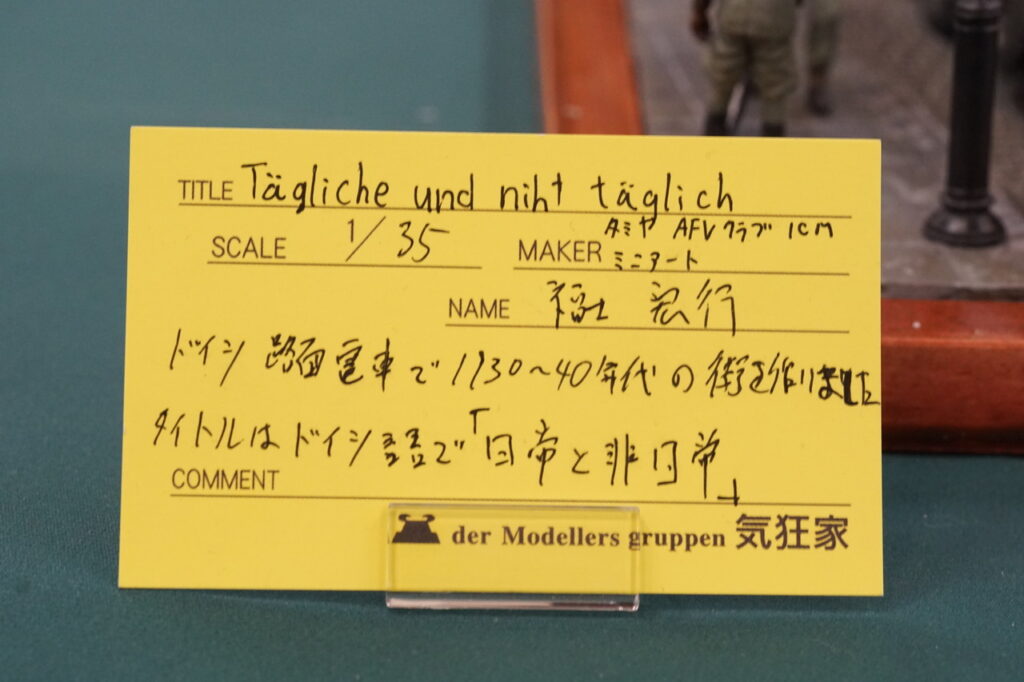 TITLE Tägliche und niht täglich
SCALE 1/35
MAKER タミヤ AFVクラブ ICM
ミニアート
NAME 宏行
ドイツ 路面電車で1930～40年代の街を作りました
タイトルはドイツ語で「日常と非日常」
COMMENT
der Modellers gruppen 気狂家